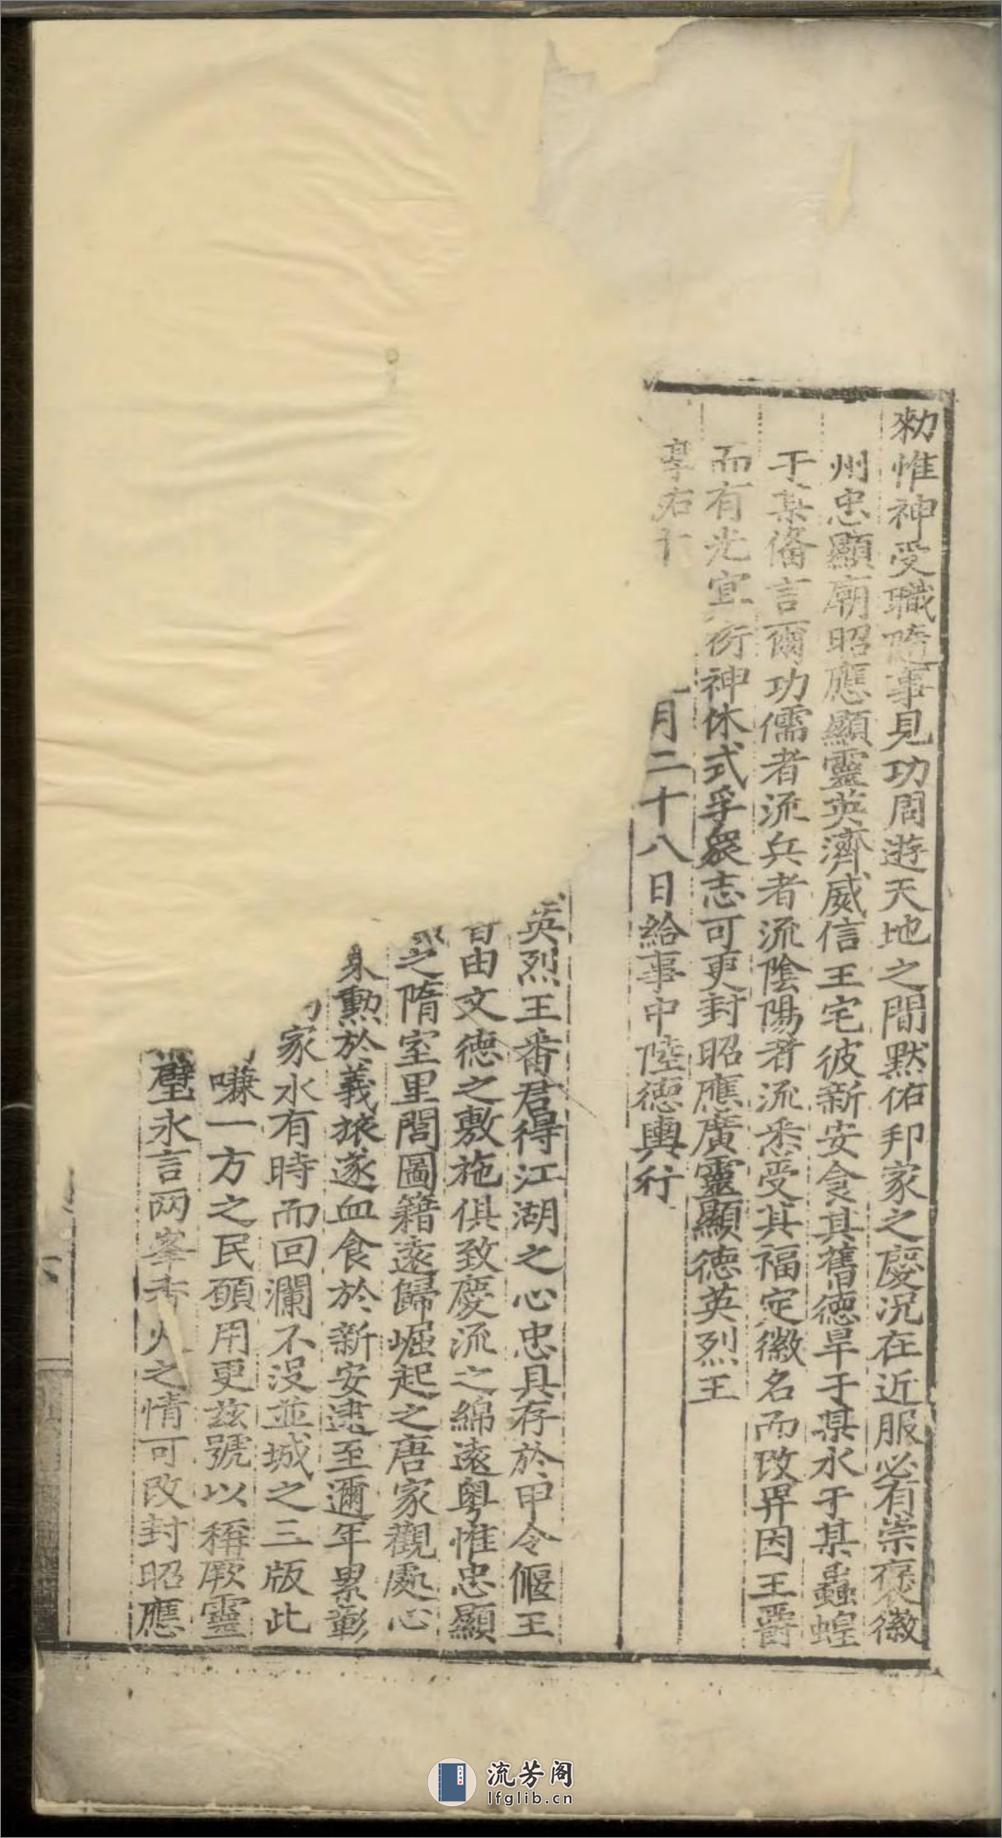 勑惟神受職隨事見功周遊天地之間默佑邦家之慶況在近服必有崇褒徽
州忠顯廟昭應顯靈英濟威信王宅彼新安食其舊德旱于某水于某蟲蝗
于某俻言爾功儒者流兵者流陰陽者流悉受其福定徽名而改畀因王爵
而有光宜衍神休式孚衆志可更封昭應廣靈顯德英烈王
淳右十
月二十八日給事中陸德輿行
英烈王番君得江湖之心忠具存於甲令偃王
由文德之敷施俱致慶流之綿遠粤惟忠顯
之隋室里閭圖籍遠歸崛起之唐家觀處心
勲於義旅遂血食於新安逮至邇年累彰
家水有時而回瀾不沒並城之三版此
嗛一方之民願用更兹號以稱厥靈
璧永言两峯
之情可改封昭應
流芳阁
lfglib.cn